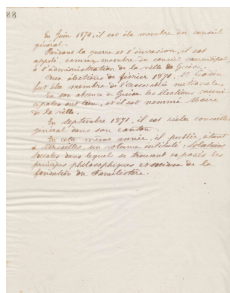 88
En Juin 1870, il est élu membre du conseil
général.
Pendant la guerre et l'invasion, il est
appelé comme membre du conseil municipal
à l'administration de la ville de Guise.
Aux élections de février 1871, M. Godin
fut élu membre de l'assemblée nationale.
En son absence à Guise les élections munici-
pales ont lieu, et il est nommé Maire
de la ville.
En septembre 1871, il est réélu conseiller
général dans son canton.
En cette même année, il publie, étant
à Versailles, un volume intitulé: Solutions
sociales dans lequel se trouvent exposés les
principes philosophiques et sociaux de la
fondation du Familistère.